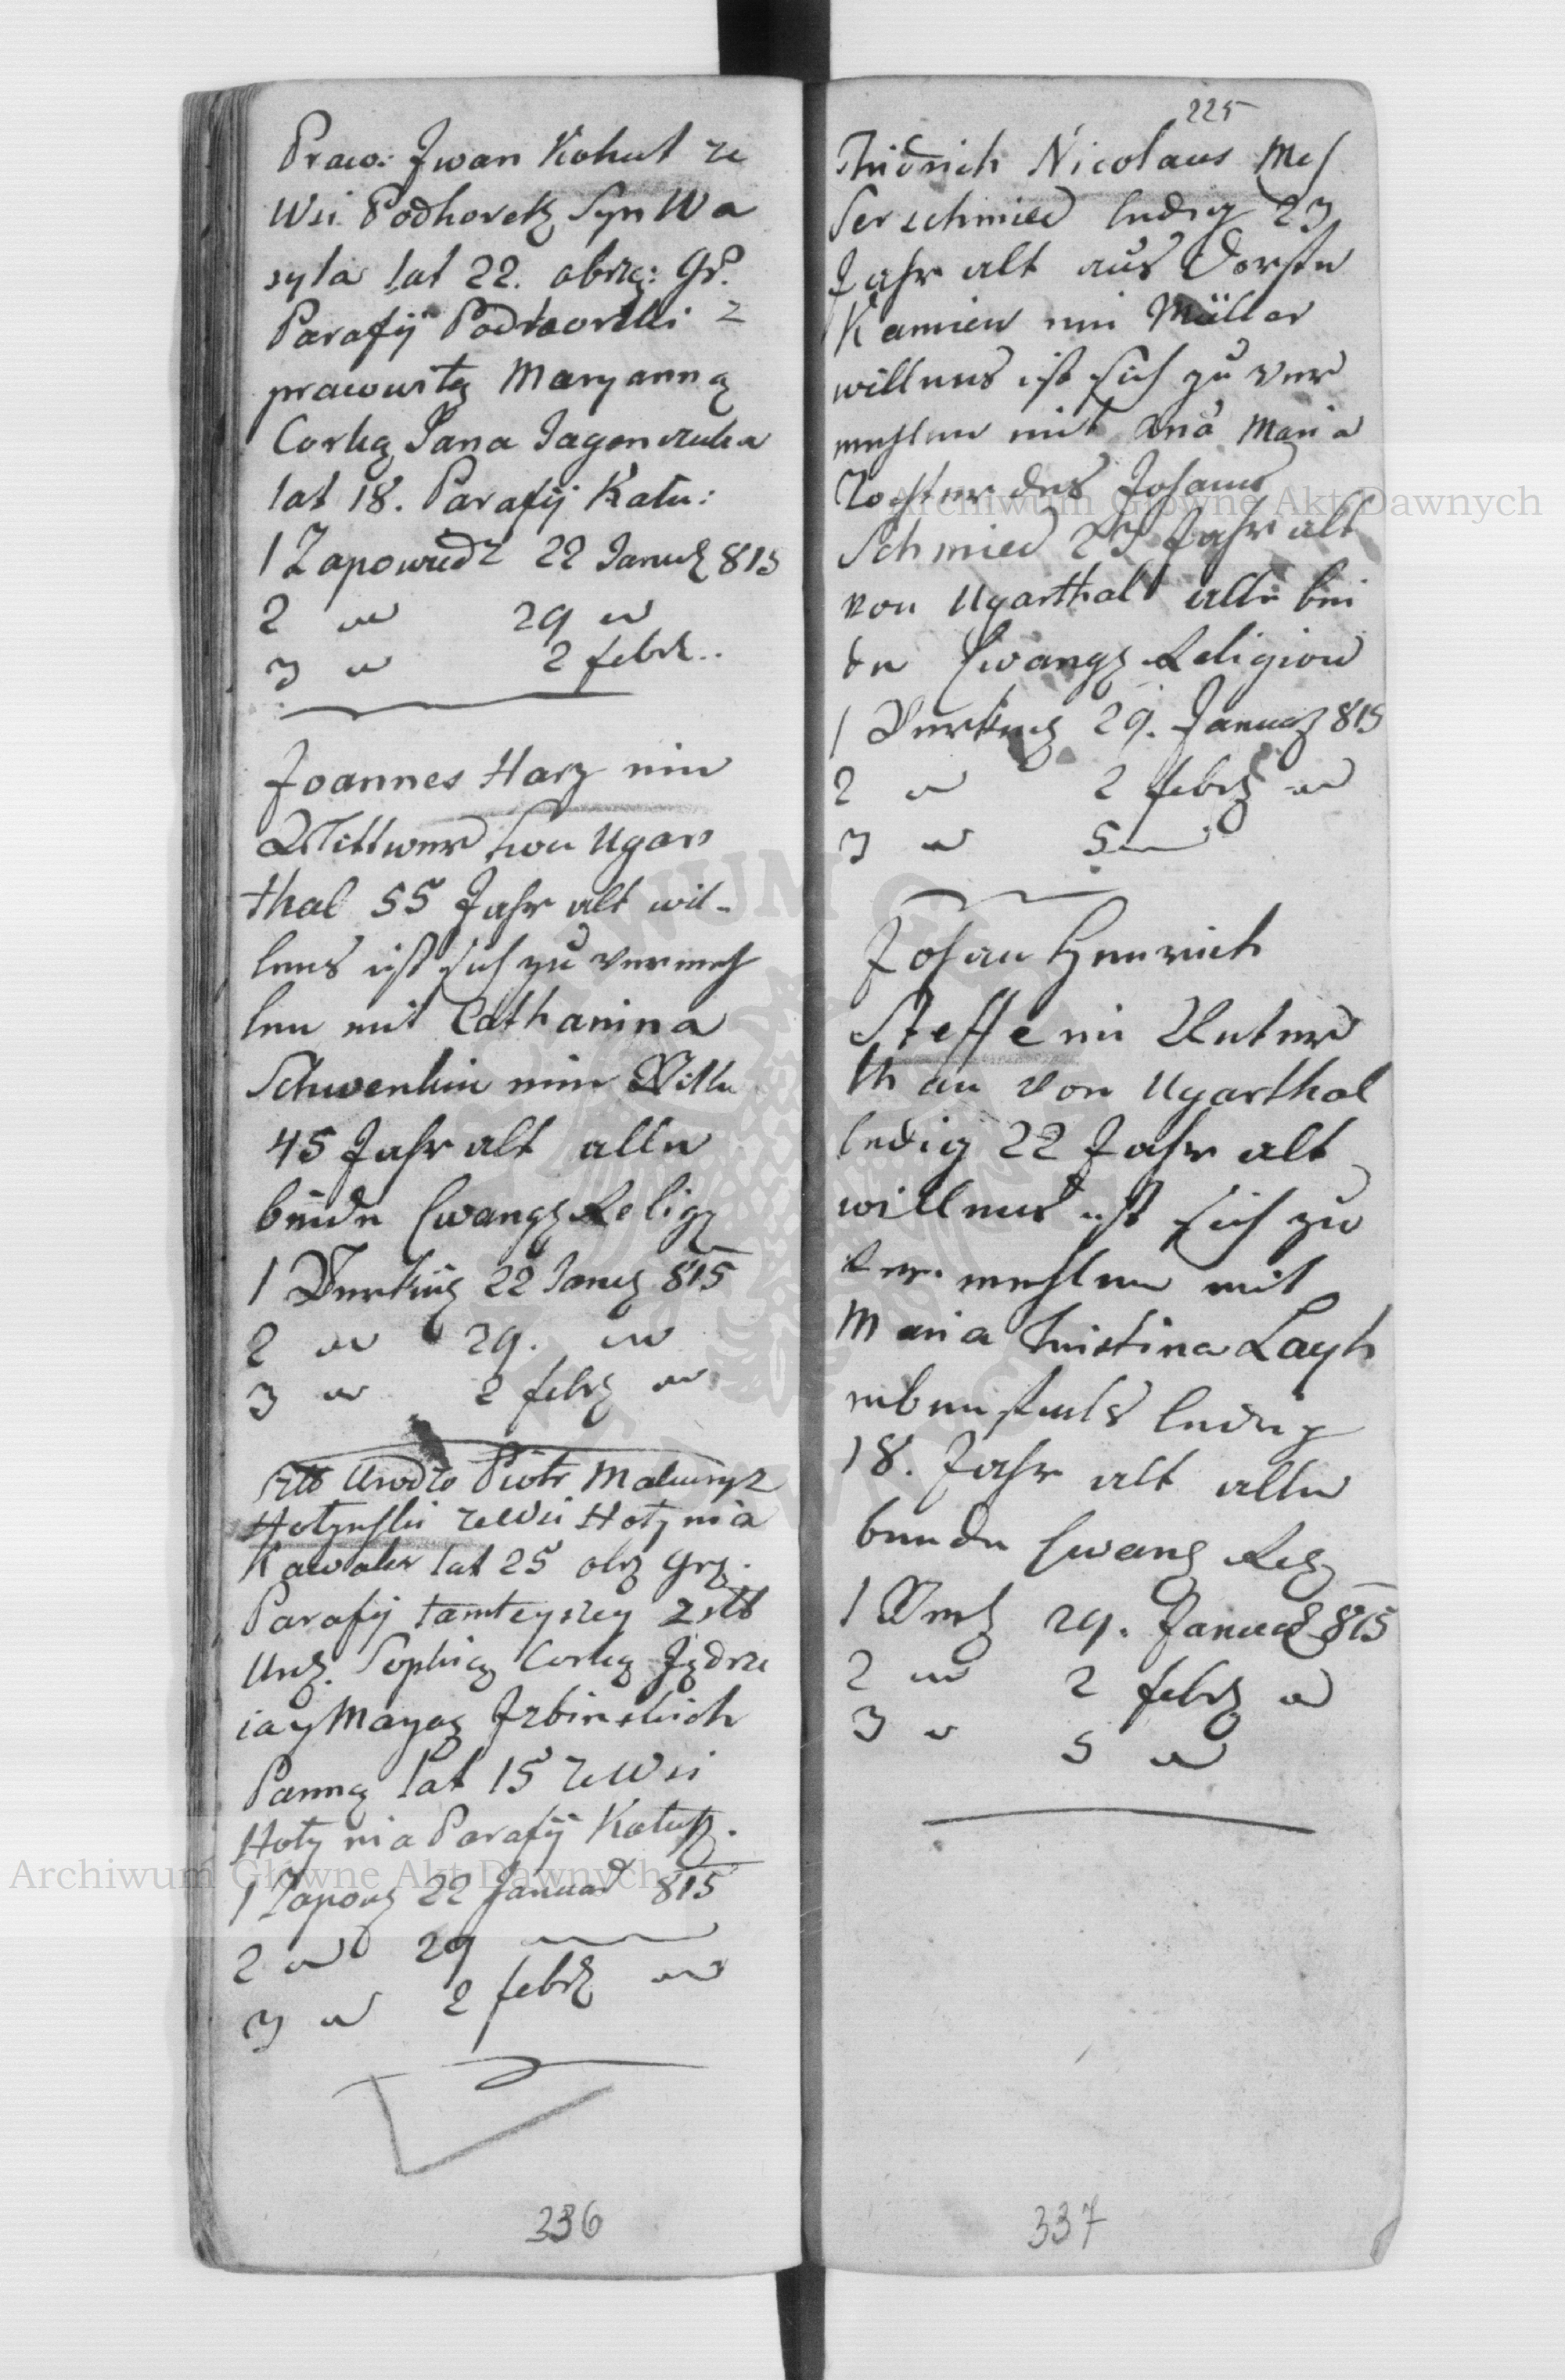 Praw: Jwan Kohut ze
Wsi Podhorek Syn Wa
syla lat 22. obrzą: Gr.
Parafij Podhorki z
prawowitą Maryanną
Corką Jana Jagenczuka
lat 18. Parafij Kału:
1 Zapowiedz 22 Januar 815
2 " 29 "
3 " 2 febr..
Joannes Harz ein
Wittwer von Ugars
thal 55 Jahr alt wil-
lens ist sich zu vermeh
len mit Catharina
Schwenkin eine Witte
45 Jahr alt alle
beide Ewang Relig
1 Verkün 22 Janu 815
2 " 29. "
3 " 2 febr "
Urodzo Piotr
Hołynski ze Wsi Hołynia
Kawaler lat 25 obrz Grz.
Parafij tamteyszey z
Urz. Sophią Corką Jędrze
ia y Maryą Jzbinskich
Panną lat 15 ze Wsi
Hołynia Parafij Kałusz.
1 Zapow 22 Januar 815
2 " 29 "
3 " 2 febr "
336
225
Fridrich Nicolaus Mes
serschmied ledig 23
Jahr alt aus Dorfe
Kamien ein Müller
willens ist sich zu ver
mehlen mit Ana Maria
Tochter des Johann
Schmied 23 Jahr alt
von Ugarthal alle bei
de Ewang Religion
1 Verkün 29. Januar 815
2 " 2 febr "
3 " 5 "
Johan Henrich
Steffe ein Unter
than von Ugarthal
ledig 22 Jahr alt
willens ist sich zu
ver mehlen mit
Maria Christina Layh
ebenfals ledig
18. Jahr alt alle
beide Ewang Rel
1 Verk 29. Januar 815
2 " 2 febr "
3 " 5 "
337
Archiwum Główne Akt Dawnych
Archiwum Główne Akt Dawnych